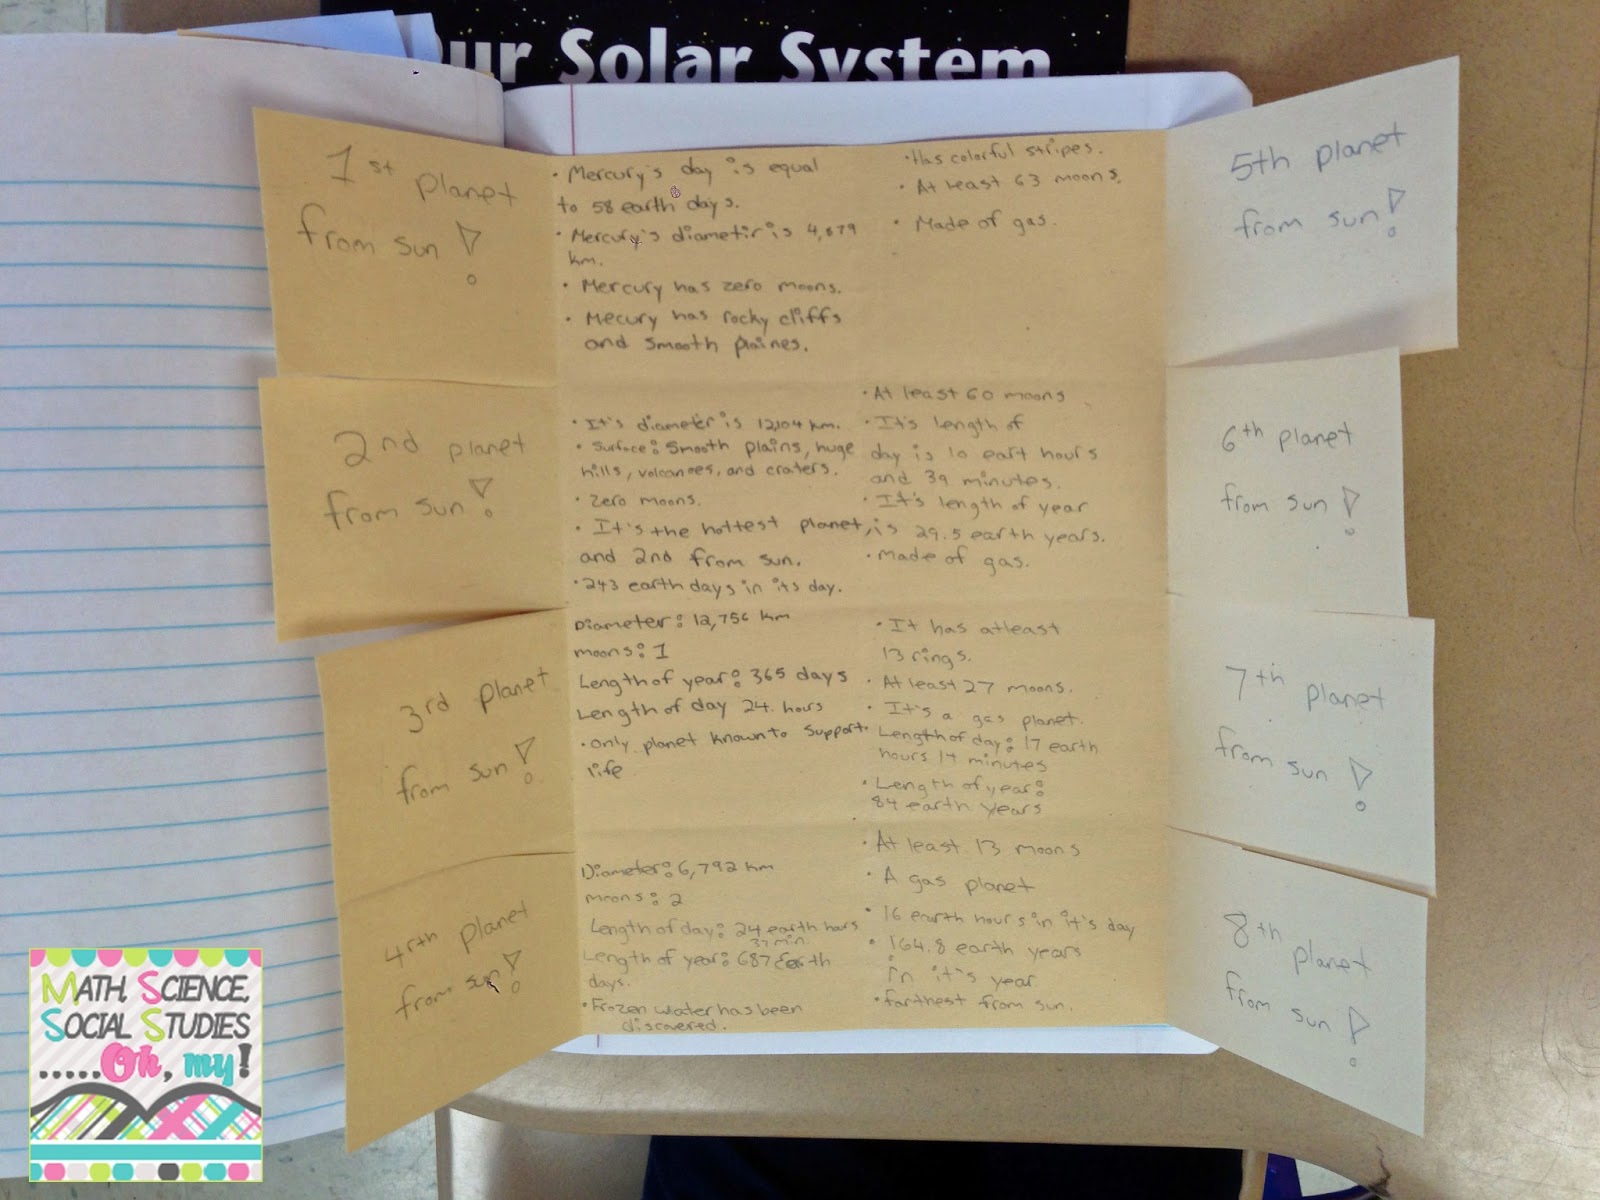 Our Solar System
1st planet
from sun!
• Mercury's day is equal
to 58 earth days.
• Mercury's diametir is 4,879
km.
• Mercury has zero moons.
• Mecury has rocky cliffs
and smooth plaines.
• Has colorful stripes.
• At least 63 moons.
• Made of gas.
5th planet
from sun!
2nd planet
from sun!
• It's diameter is 12,104 km.
• Surface: Smooth plains, huge
hills, volcanoes, and craters.
• Zero moons.
• It's the hottest planet,
and 2nd from sun.
• 243 earth days in its day.
• At least 60 moons
• It's length of
day is 10 eart hours
and 39 minutes.
• It's length of year
is 29.5 earth years.
• Made of gas.
6th planet
from sun!
3rd planet
from sun!
Diameter: 12,756 km
moons: 1
Length of year: 365 days
Length of day 24 hours
• Only planet known to support
life
• It has atleast
13 rings.
• At least 27 moons.
• It's a gas planet.
Length of day: 17 earth
hours 14 minutes
• Length of year:
84 earth years
7th planet
from sun!
4rth planet
from sun!
Diameter: 6,792 km
moons: 2
Length of day: 24 earth hours
37 min.
Length of year: 687 Earth
days.
• Frozen water has been
discovered.
• At least 13 moons
• A gas planet
• 16 earth hours in it's day
• 164.8 earth years
in it's year
• farthest from sun.
8th planet
from sun!
Math, Science,
Social Studies
.....Oh, my!